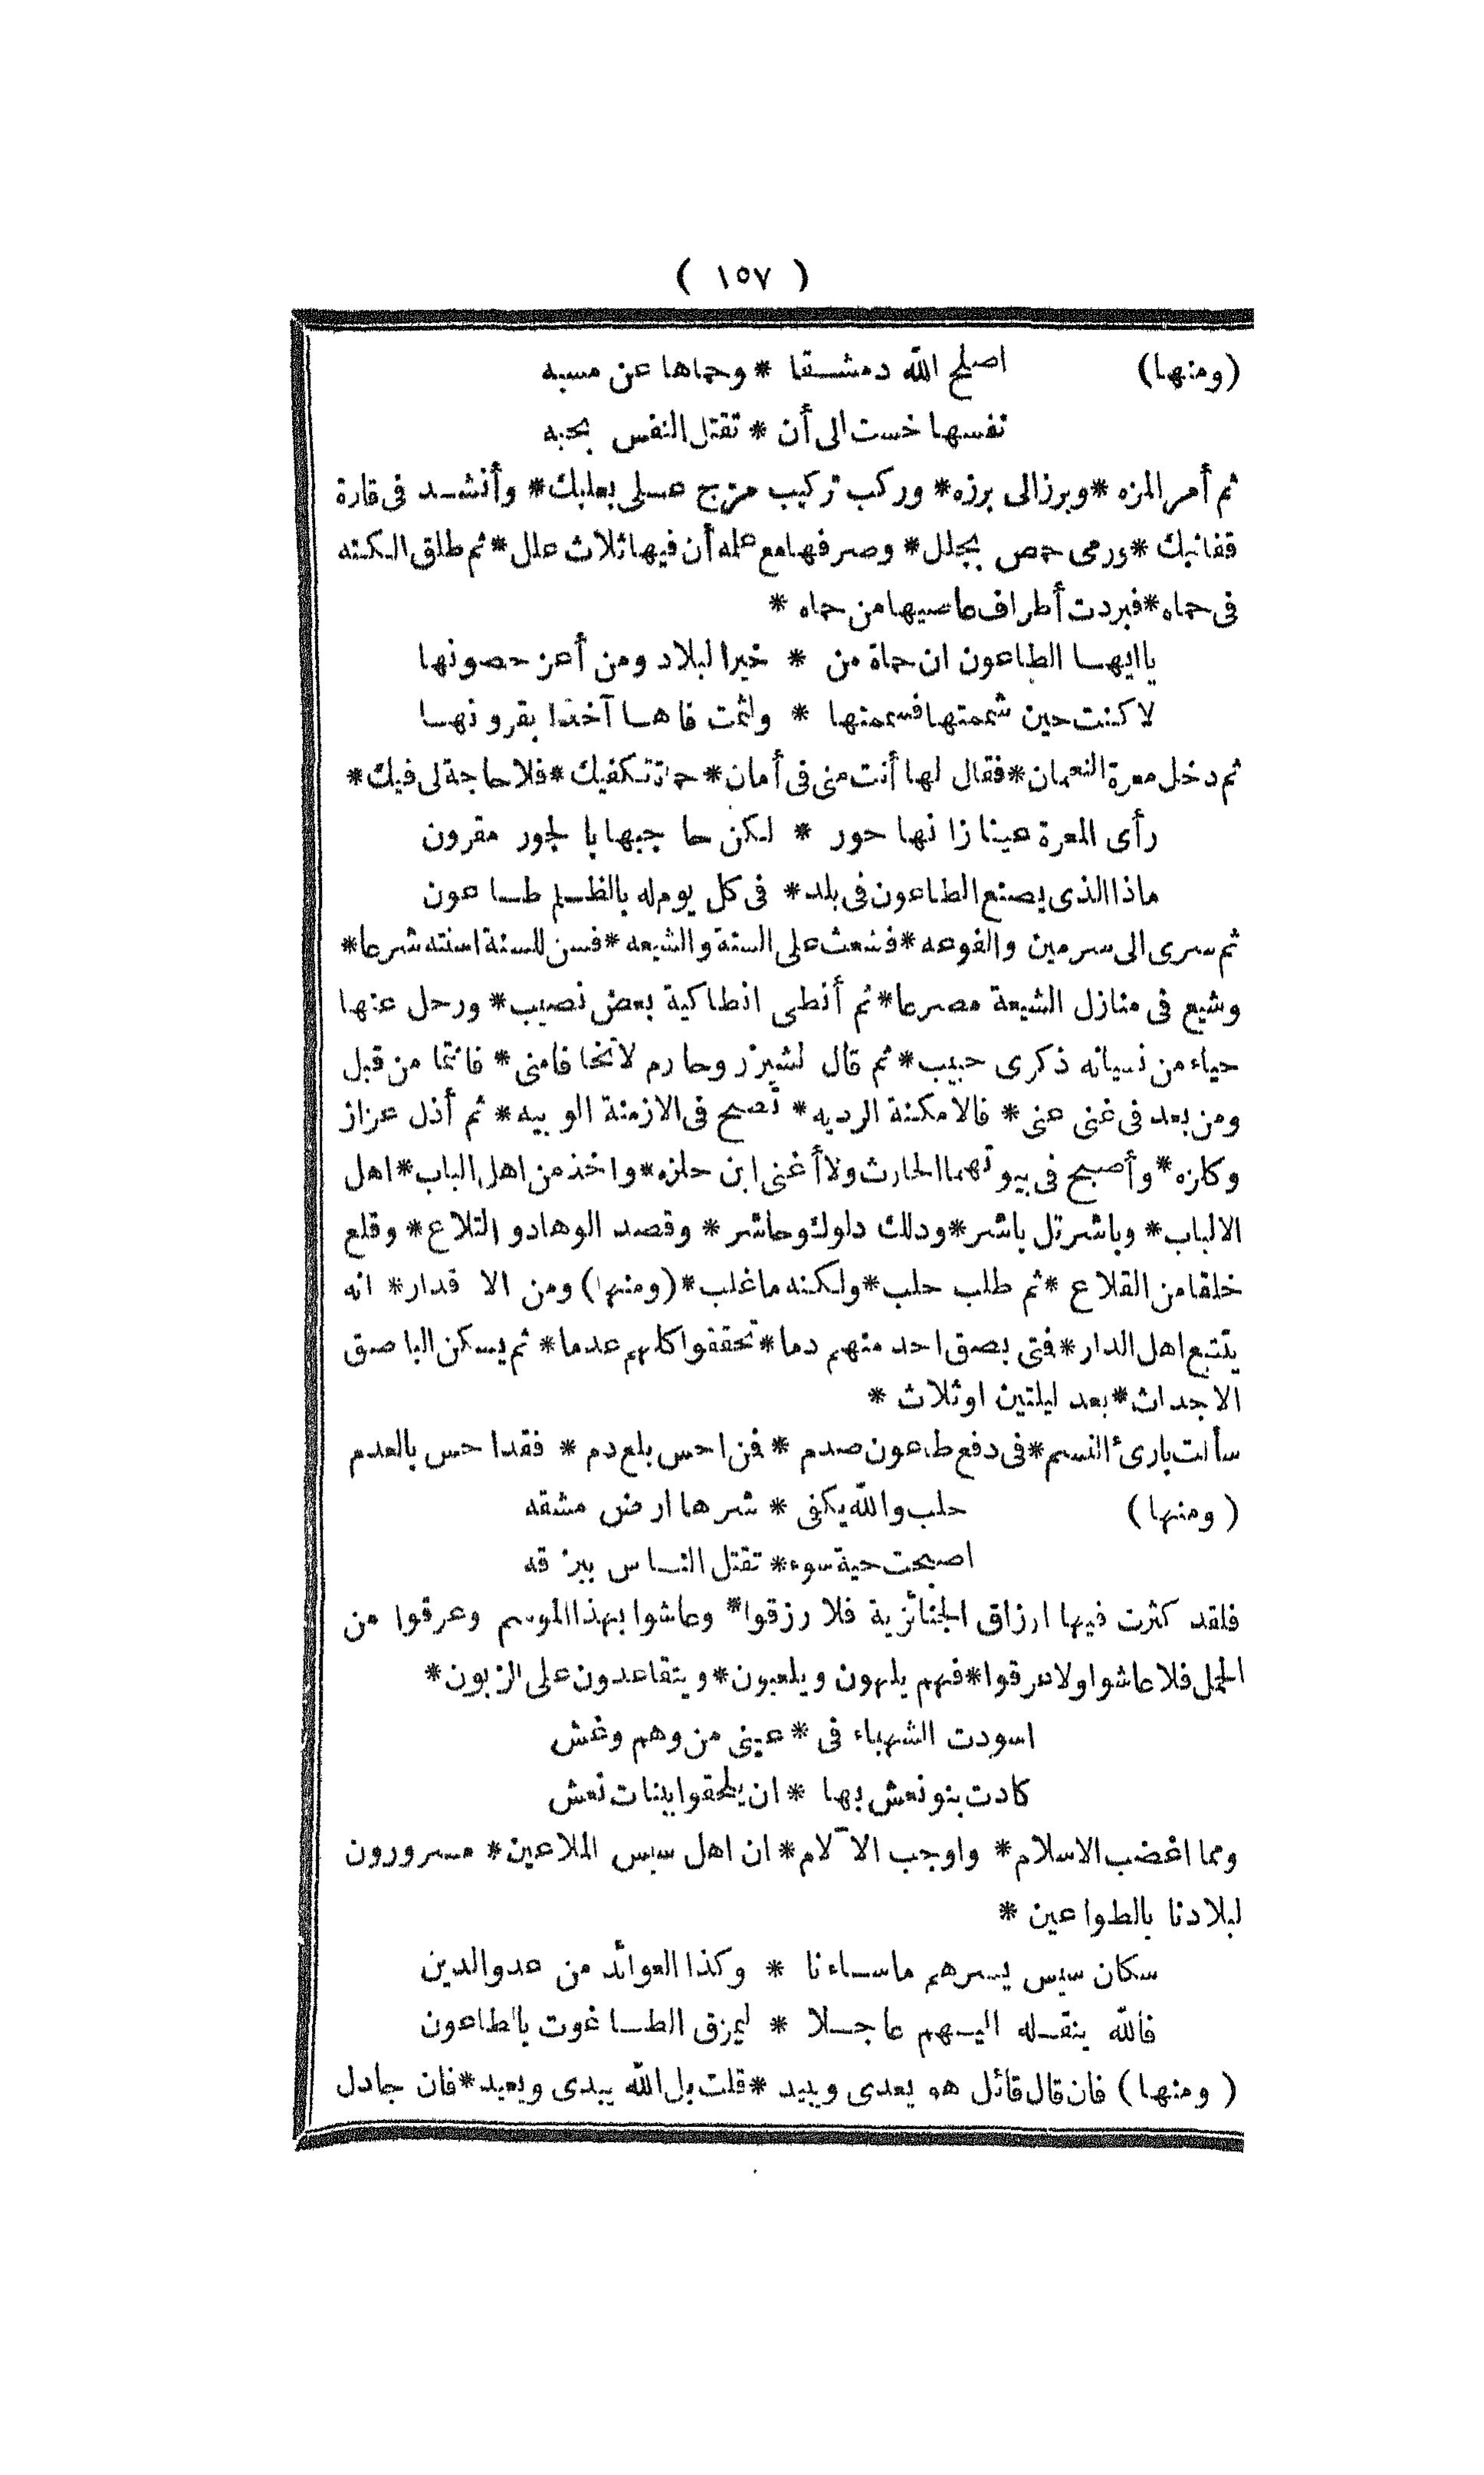 ( ١٥٧ )
(ومنها) اصلح الله دمشقا * وحماها عن مسبه
نفسها خست الى أن * تقتل النفس بحبه
ثم أمر المزه * وبرز الى برزه * وركب تركيب مزج على بعلبك * وأنشد فى قارة
قفانبك * ورمى حمص بجلل * وصرفها مع علمه أن فيها ثلاث علل * ثم طلق الكنه
فى حماه * فبردت أطراف عاصيها من حماه *
يا ايها الطاعون ان حماة من * خير البلاد ومن أعز حصونها
لا كنت حين شممتها فسممتها * ولثمت فاها آخذا بقرونها
ثم دخل معرة النعمان * فقال لها أنت منى فى أمان * حماة تكفيك * فلا حاجة لى فيك *
رأى المعرة عينا زانها حور * لكن حاجبها بالجور مقرون
ماذا الذى يصنع الطاعون فى بلد * فى كل يوم له بالظلم طاعون
ثم سرى الى سرمين والفوعه * فشعث على السنة والشيعه * فسن للسنة اسنته شرعا *
وشيع فى منازل الشيعة مصرعا * ثم أنطى انطاكية بعض نصيب * ورحل عنها
حياء من نسيانه ذكرى حبيب * ثم قال لشيزر وحارم لا تخافا منى * فانتما من قبل
ومن بعد فى غنى عنى * فالامكنة الرديه * تصح فى الازمنة الوبيه * ثم أذل عزاز
وكلزه * وأصبح فى بيوتهما الحارث ولا أغنى ابن حلزه * واخذ من اهل الباب * اهل
الالباب * وباشر تل باشر * ودلك دلوك وحاشر * وقصد الوهاد والتلاع * وقلع
خلقا من القلاع * ثم طلب حلب * ولكنه ما غلب * (ومنها) ومن الاقدار * انه
يتتبع اهل الدار * فمتى بصق احد منهم دما * تحققوا كلهم عدما * ثم يسكن الباصق
الاجداث * بعد ليلتين اوثلاث *
سألت بارئ النسم * فى دفع طاعون صدم * فمن احس بلع دم * فقد احس بالعدم
(ومنها) حلب والله يكفى * شرها ارض مشقه
اصبحت حية سوء * تقتل الناس ببزقه
فلقد كثرت فيها ارزاق الجنائزية فلا رزقوا * وعاشوا بهذا الموسم وعرقوا من
الحمل فلا عاشوا ولا عرقوا * فهم يلهون ويلعبون * ويتقاعدون على الزبون *
اسودت الشهباء فى * عينى من وهم وغش
كادت بنو نعش بها * ان يلحقوا ببنات نعش
ومما اغضب الاسلام * واوجب الآلام * ان اهل سيس الملاعين * مسرورون
لبلادنا بالطواعين *
سكان سيس يسرهم ما ساءنا * وكذا العوائد من عدو الدين
فالله ينقله اليهم عاجلا * ليمزق الطاغوت بالطاعون
(ومنها) فان قال قائل هو يعدى ويبيد * قلت بل الله يبدى ويعيد * فان جادل